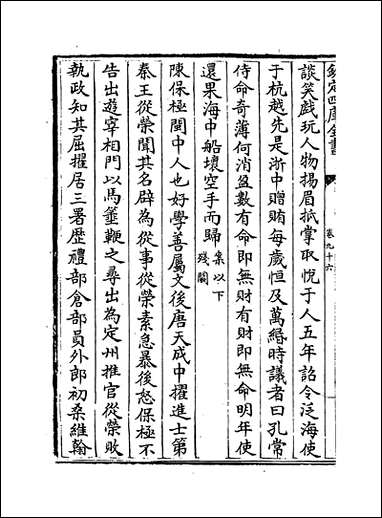 欽定四庫全書
卷九十六
談笑戲玩人物揚眉抵掌取悅于人五年詔令泛海使
于杭越先是浙中贈賄每歲恒及萬緡時議者曰孔常
侍命奇薄何消盈數有命即無財有財即無命明年使
還果海中船壞空手而歸案以下殘闕
陳保極閩中人也好學善屬文後唐天成中擢進士第
秦王從榮聞其名辟為從事從榮素急暴後怒保極不
告出遊宰相門以馬箠鞭之尋出為定州推官從榮敗
執政知其屈擢居三署歷禮部倉部員外郎初桑維翰